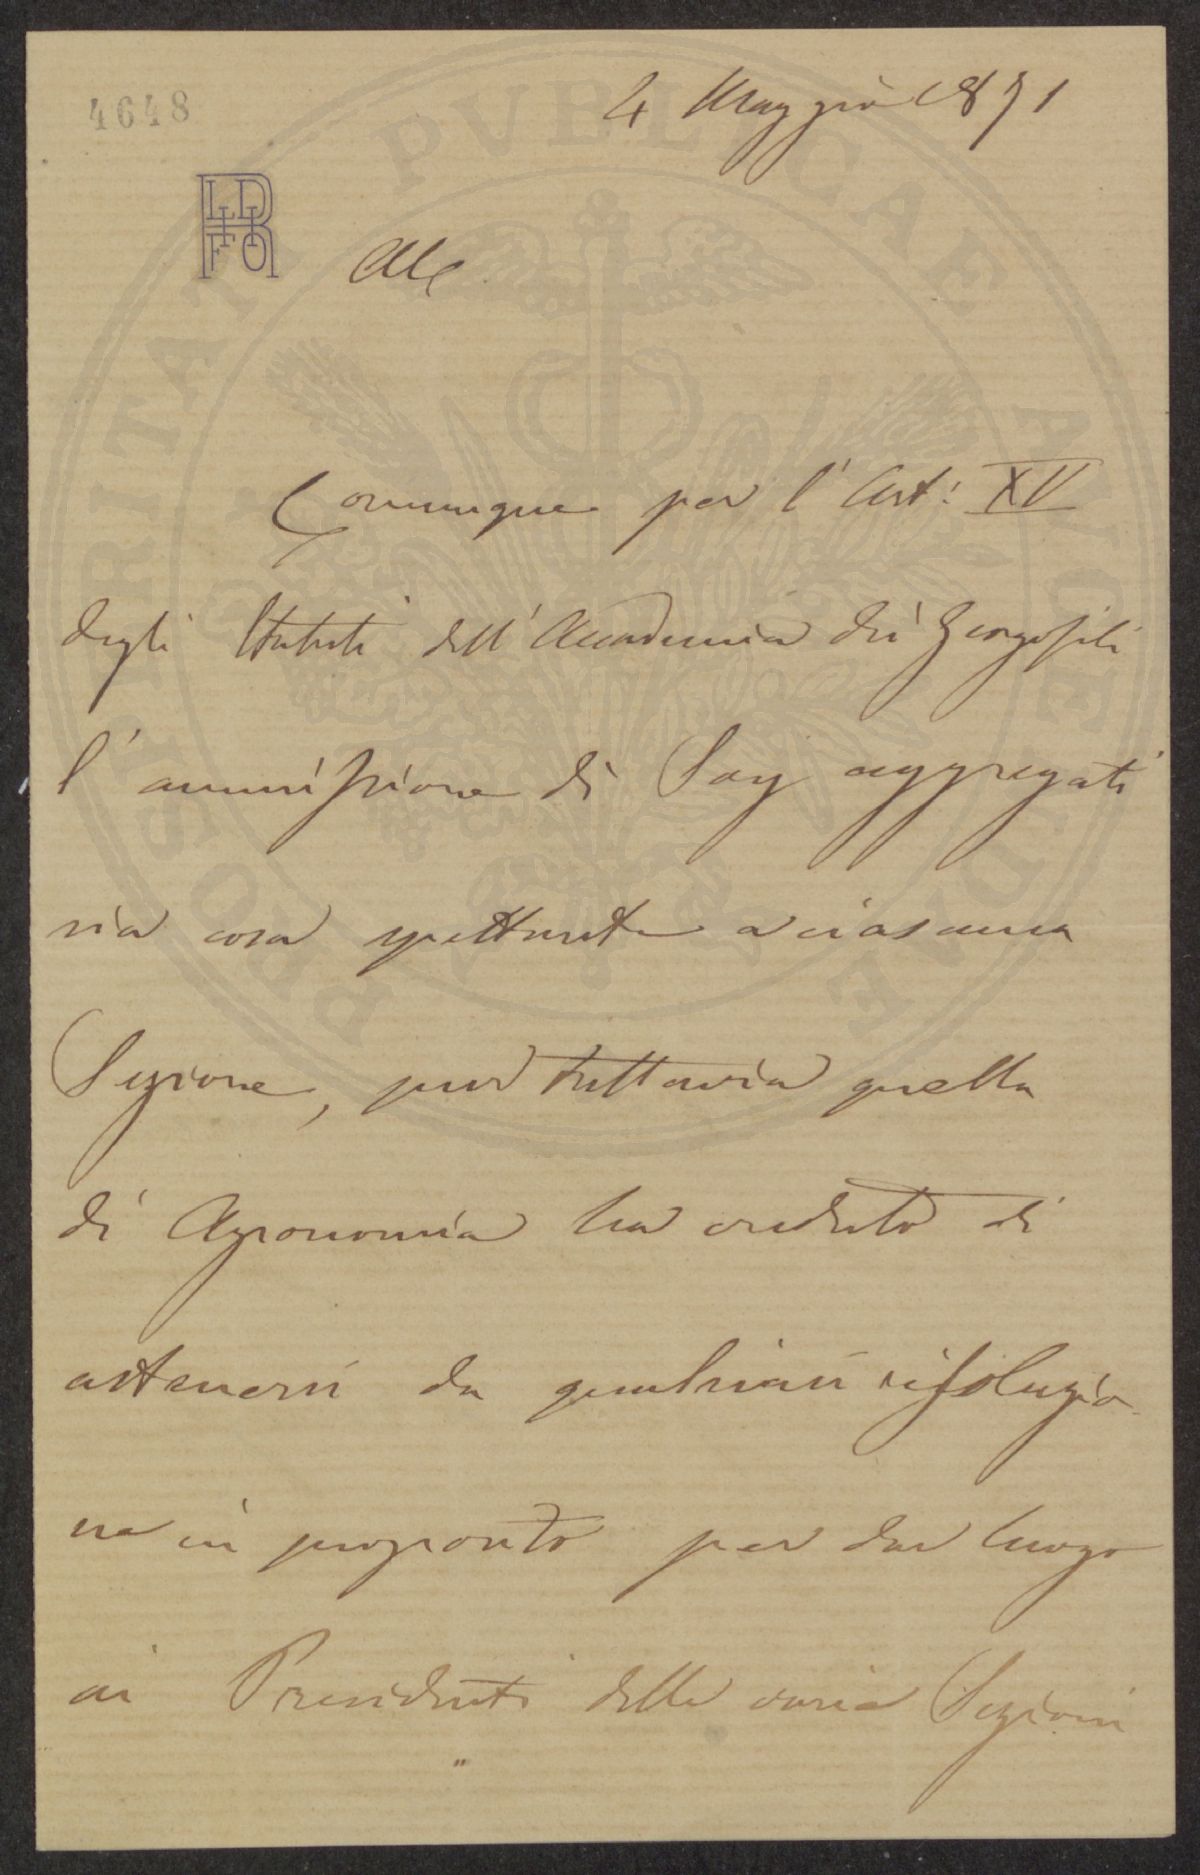 4648
4 Maggio 1871
Ale
Comunque per l'Art: XV
degli Statuti dell'Accademia dei Georgofili
l'ammissione di Socj aggregati
sia cosa spettante a ciascuna
Sezione, pur tuttavia quella
di Agronomia ha creduto di
astenersi da qualsiasi risoluzio
ne in proposito per dar luogo
ai Presidenti delle varie Sezioni
PROSPERITATI PVBLICAE AVGENDAE